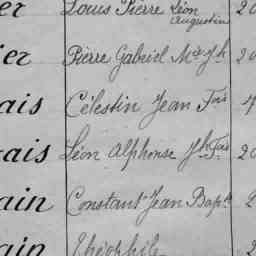 er Louis Pierre Léon 20
Augustin
ier Pierre Gabriel Mce Jh 20
ais Célestin Jean Fois
ais Léon Alphonse Jh Fois 20
ain Constant Jean Bapte 2
ain Théophile 2